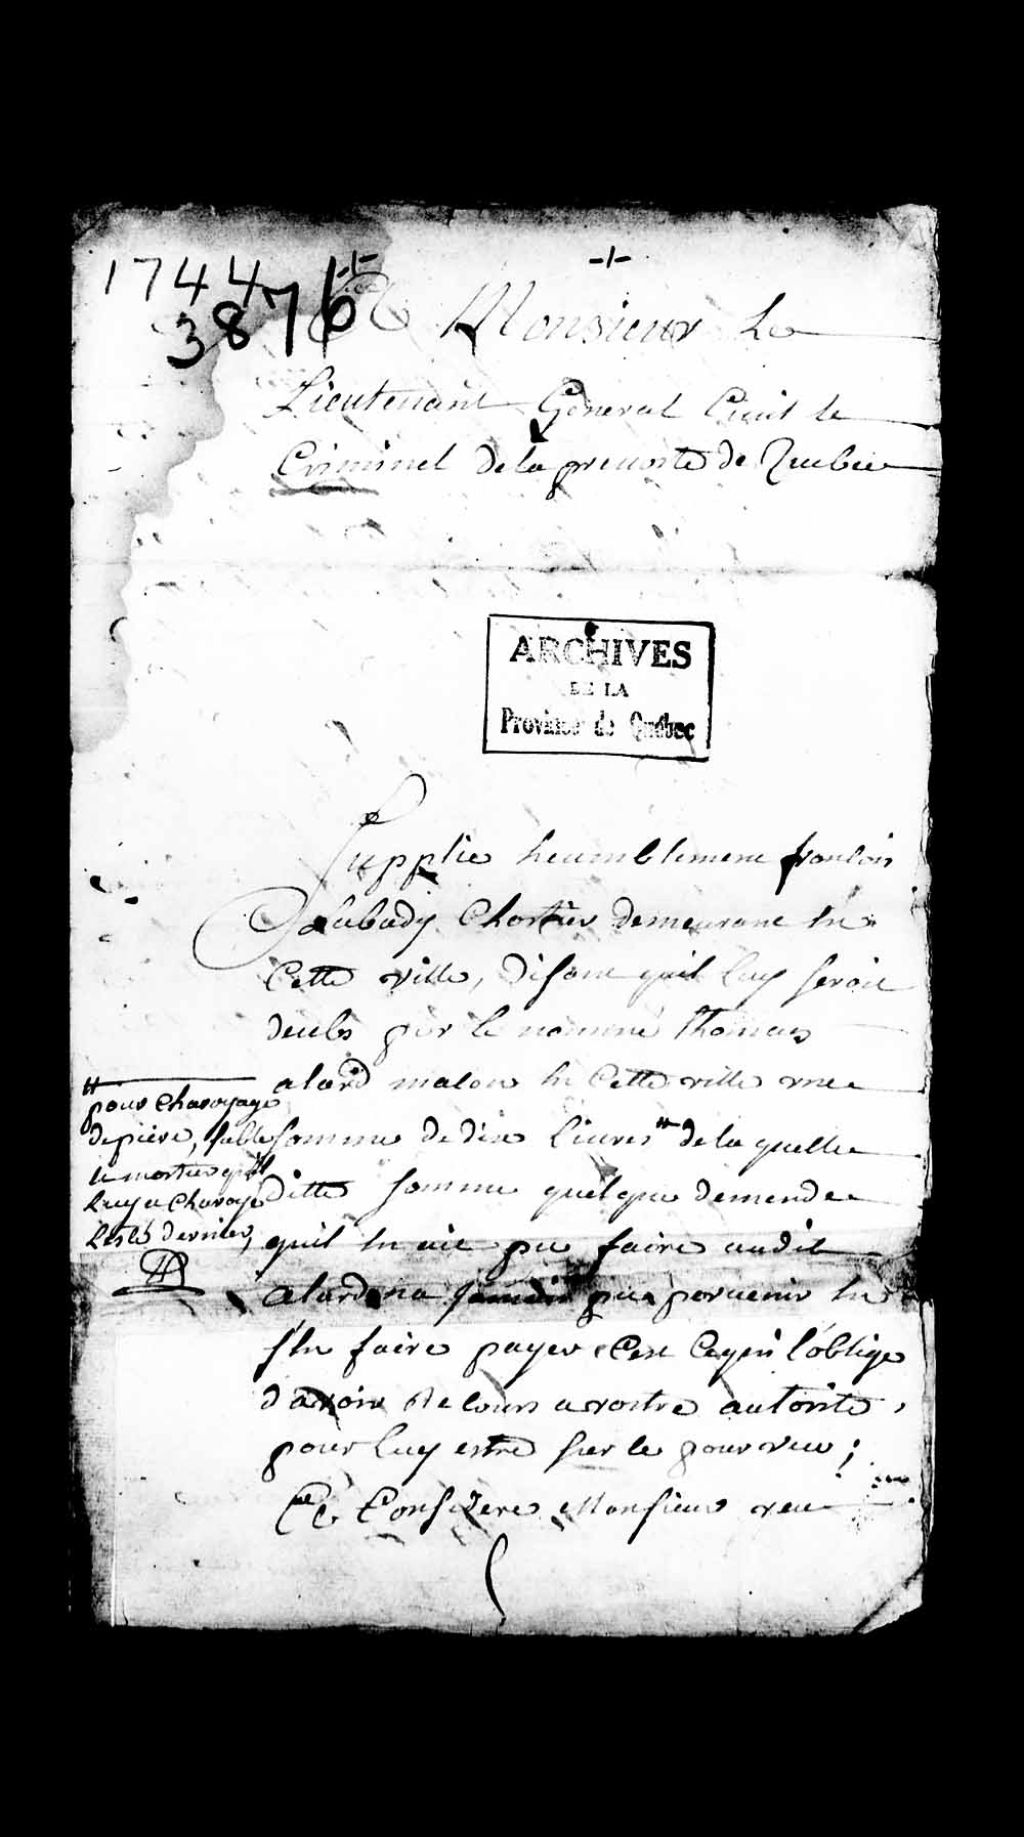 1744
3876
-/-
A Monsieur Le
Lieutenant General Civil Et
Criminel De la prevosté De Quebec
ARCHIVES
DE LA
Province de Québec
Supplie heumblement francois
Labady Chartier demeurant En
Cette ville, Disant quil luy seroit
deubs par le nommé Thomas
alard mason En Cette ville une
somme de dix Livres # de la quelle
ditte somme quelque demende
quil En ait pu faire audit
alard na jamais pu parvenir En
s'En faire payer Cest Ce qui l'oblige
d'avoir Recours a vostre autorité,
pour luy estre sur ce pourveu ;
Ce Consideré Monsieur veu
#
pour charoyage
de piere, sable
et mortier quil
luy a charoyé
l'esté dernier,